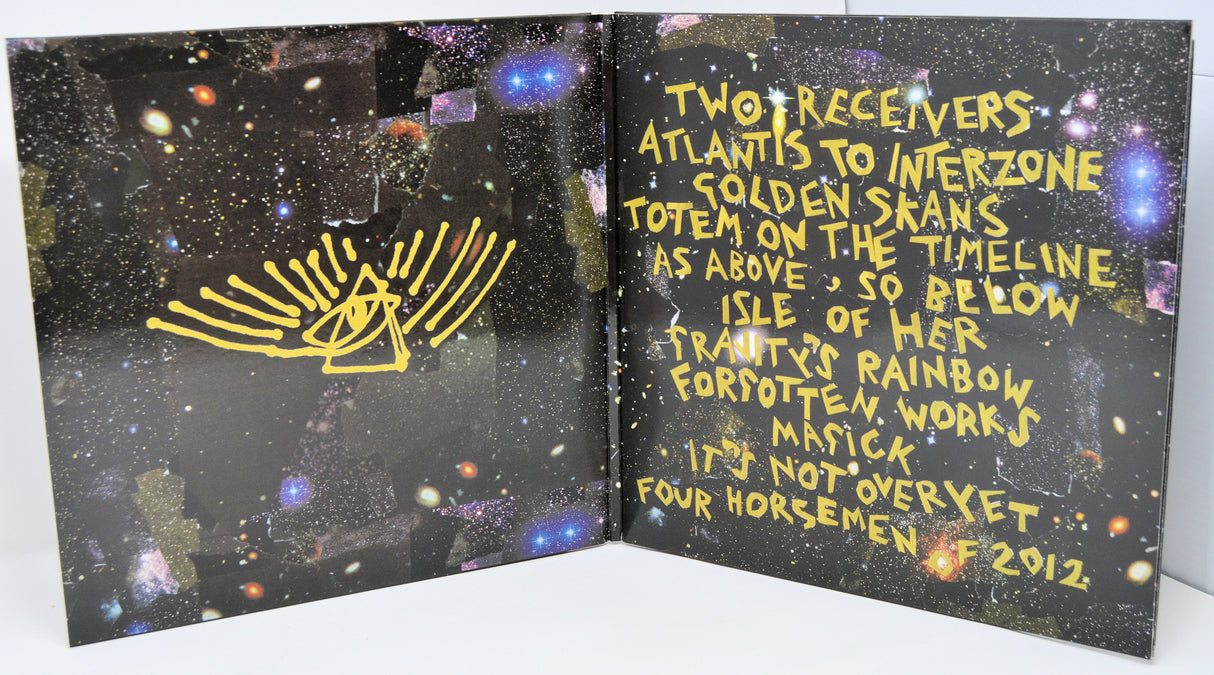 TWO RECEIVERS
ATLANTIS TO INTERZONE
GOLDEN SKANS
TOTEM ON THE TIMELINE
AS ABOVE, SO BELOW
ISLE OF HER
GRAVITY'S RAINBOW
FORGOTTEN WORKS
MAGICK
IT'S NOT OVER YET
FOUR HORSEMEN OF 2012